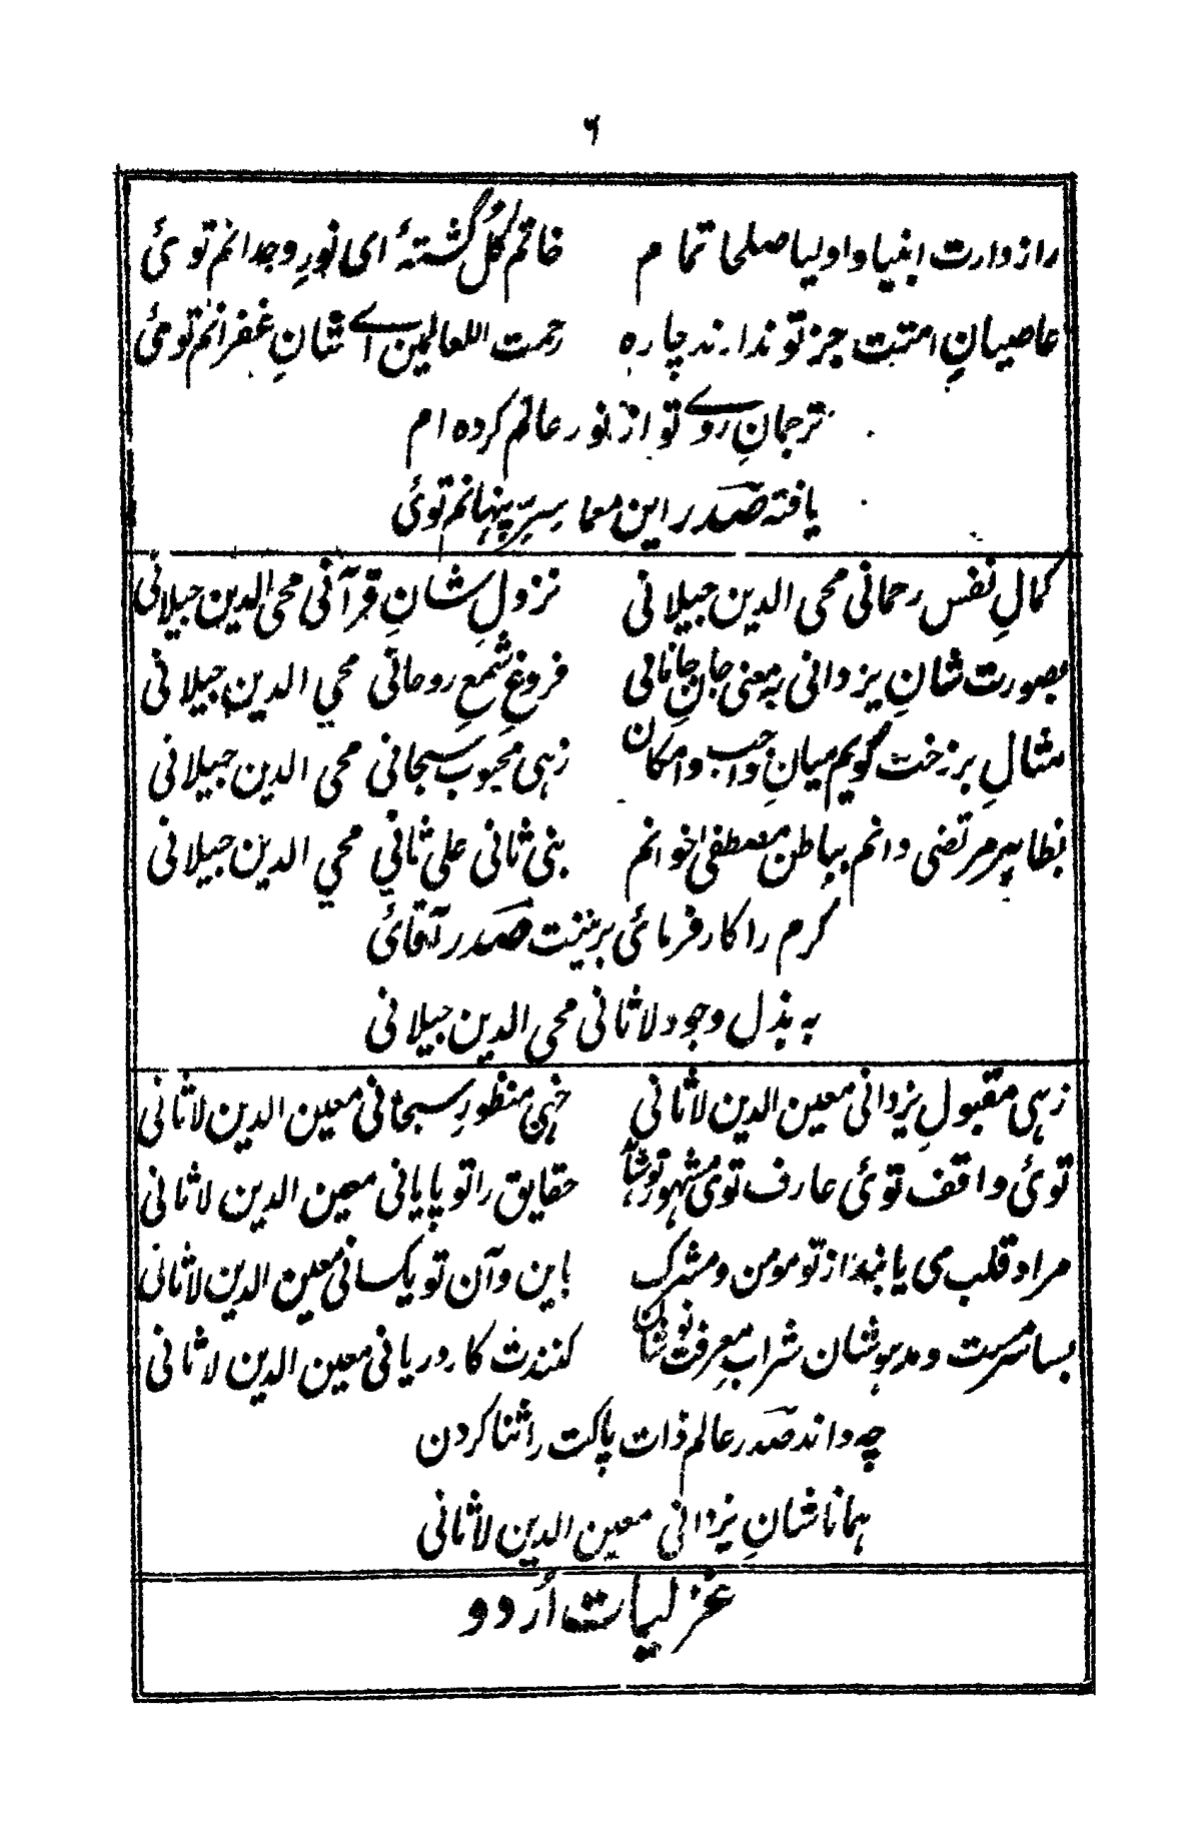 ۶
رازدارت انبیا و اولیا صلحا تمام خاتمِ کُل گشتۂ ای نورِ وجدانم توئی
عاصیانِ امتت جز تو ندارند چارہ رحمت اللعالمین اے شانِ غفرانم توئی
ترجمانِ روے تو از نور عالم کردہ ام
یافتہ صدر این معما سِرِّ پنہانم توئی
کمالِ نفس رحمانی محی الدین جیلانی نزولِ شانِ قرآنی محی الدین جیلانی
بصورت شانِ یزدانی بہ معنی جانِ جانانی فروغِ شمعِ روحانی محی الدین جیلانی
مثالِ برزخت گویم میانِ واجب و امکان زہی محبوب سبحانی محی الدین جیلانی
بظاہر مرتضی دانم بباطن مصطفیٰ خوانم بنی ثانی علی ثانی محی الدین جیلانی
کرم را کار فرمائی بر صدر آقائی
بہ بذل وجود لاثانی محی الدین جیلانی
زہی مقبولِ یزدانی معین الدین لاثانی خہی منظورِ سبحانی معین الدین لاثانی
توئی واقف توئی عارف توئی مشہور حقایق را تو پایانی معین الدین لاثانی
مراد قلب می یابند از تو مومن و مشرک باین و آن تو یکسانی معین الدین لاثانی
بسا سرمست و مدہوشان شراب معرفت نوشان کنندت کار دربانی معین الدین لاثانی
چہ داند صدر عالم ذات پاکت را ثنا کردن
ہمانا شانِ یزدانی معین الدین لاثانی
غزلیات اُردو